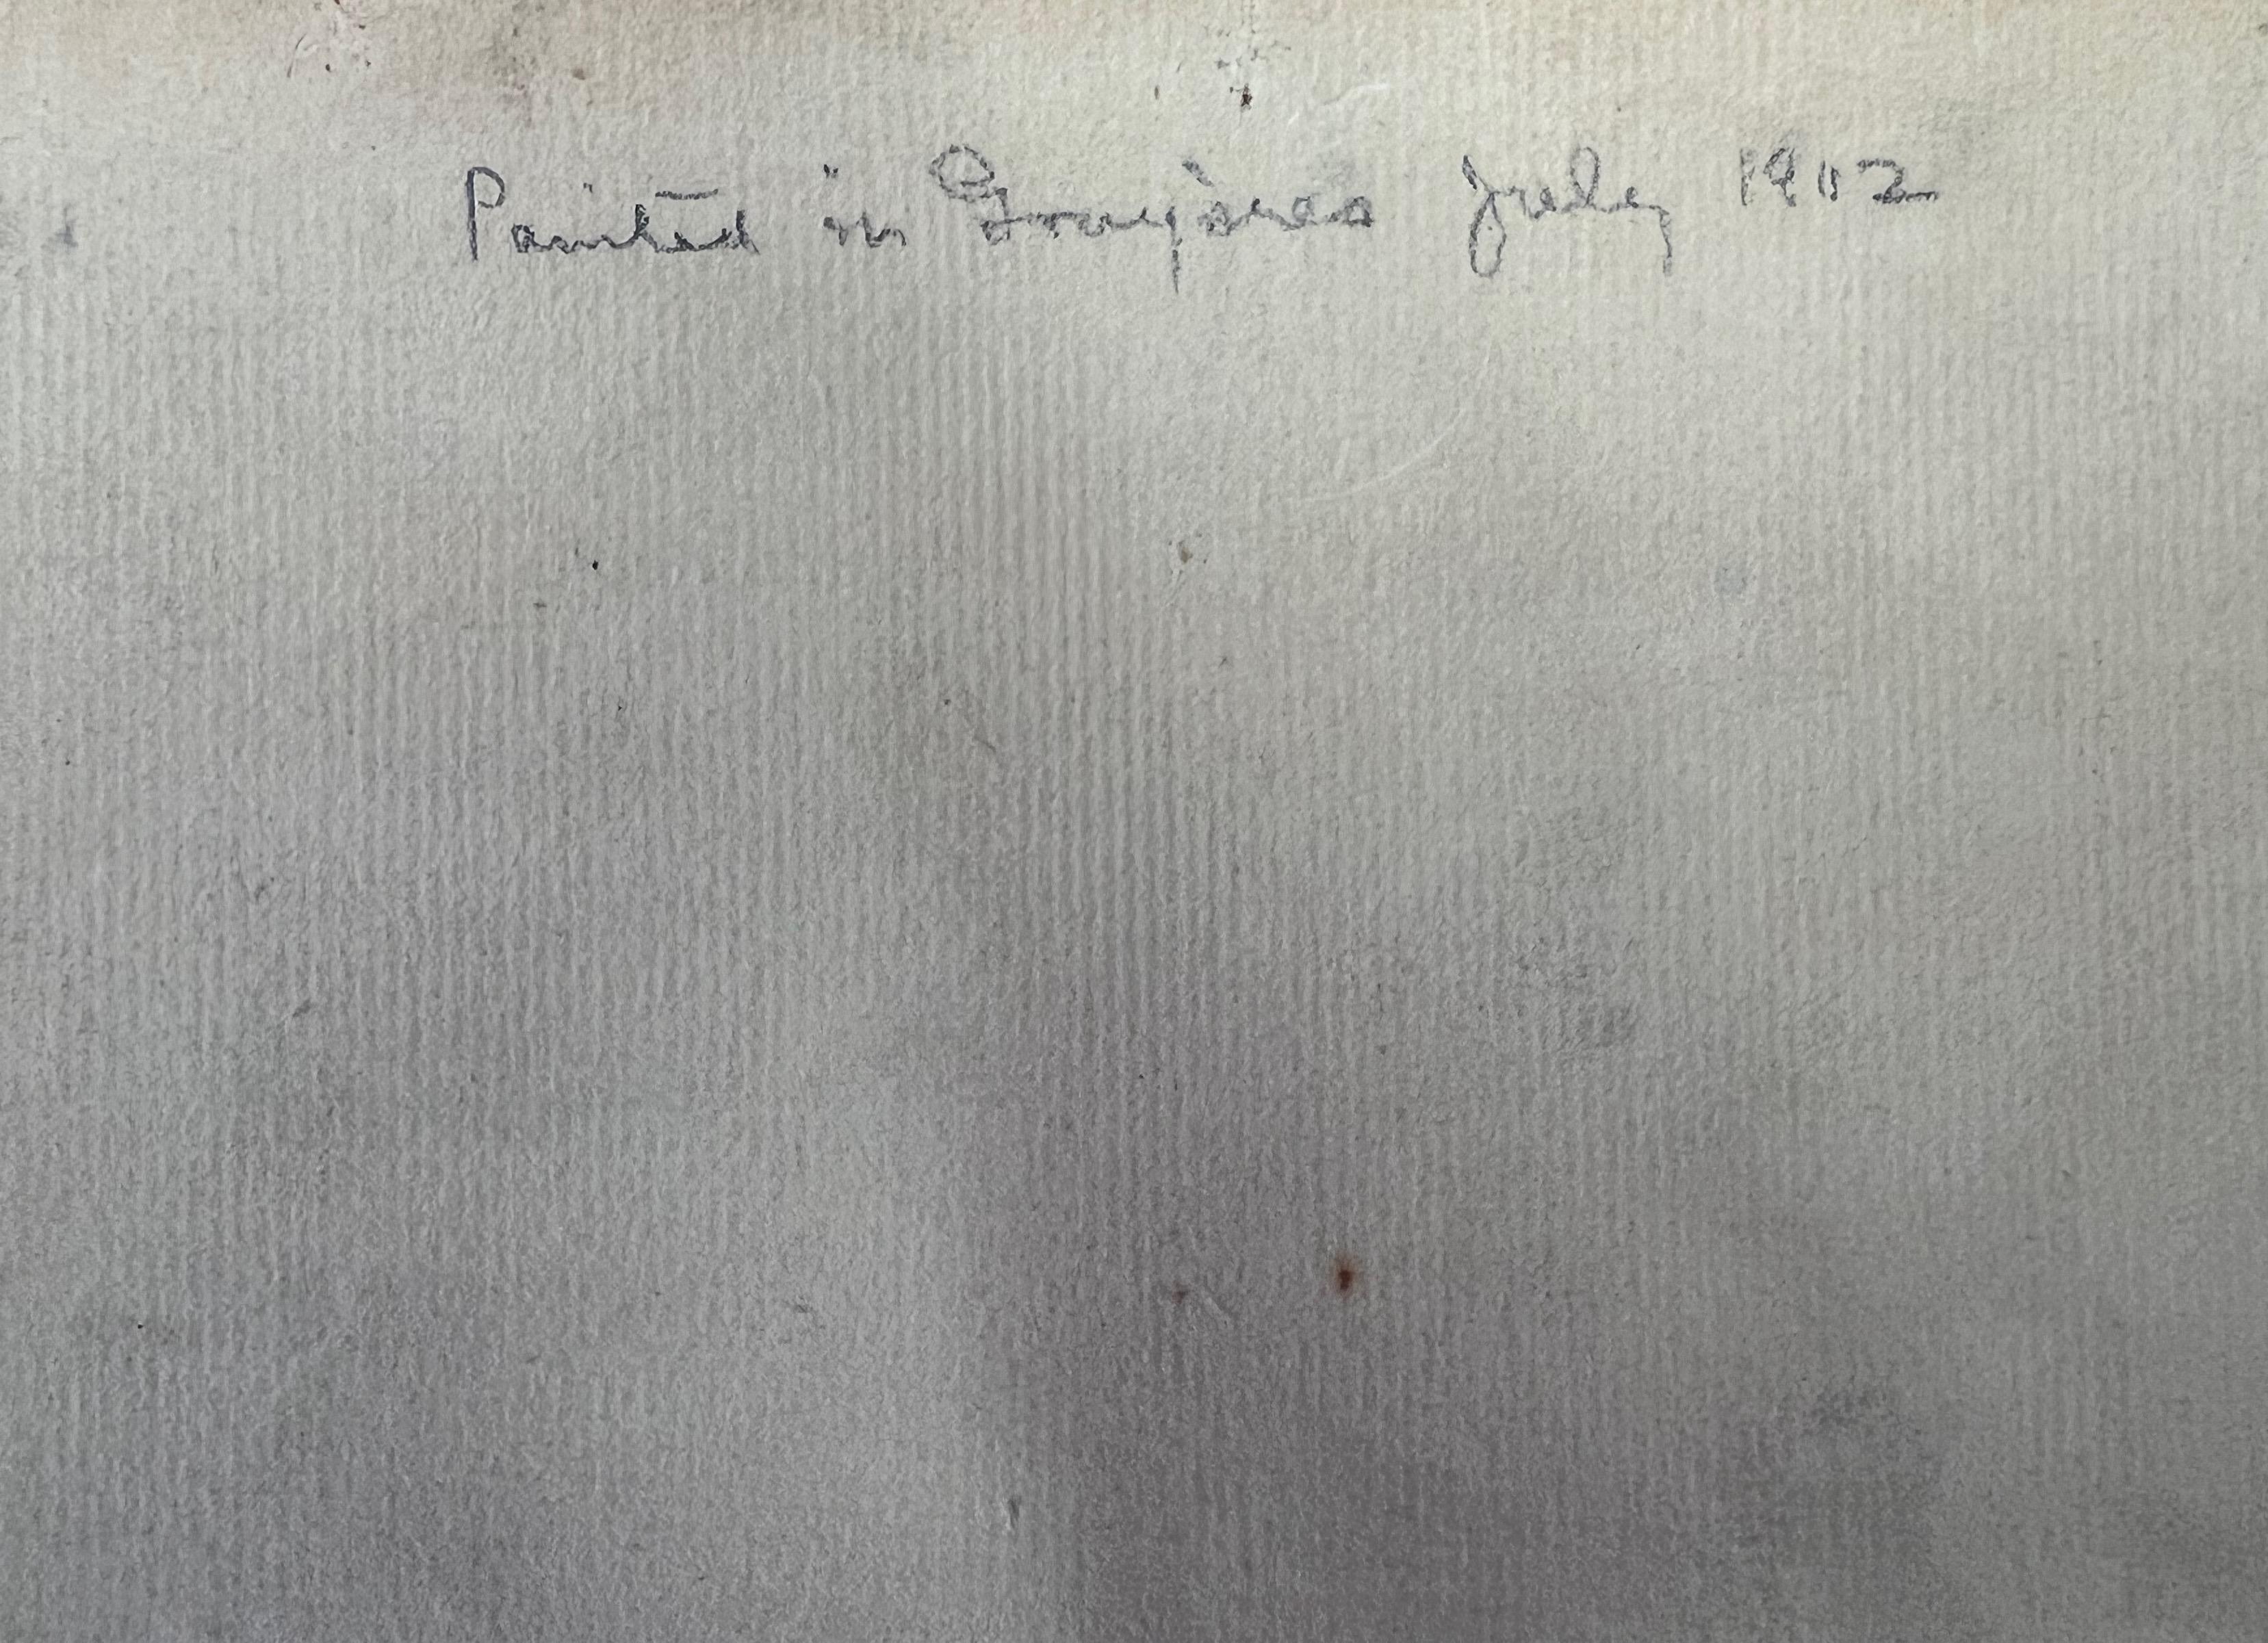 Painted in Gruyères July 1902